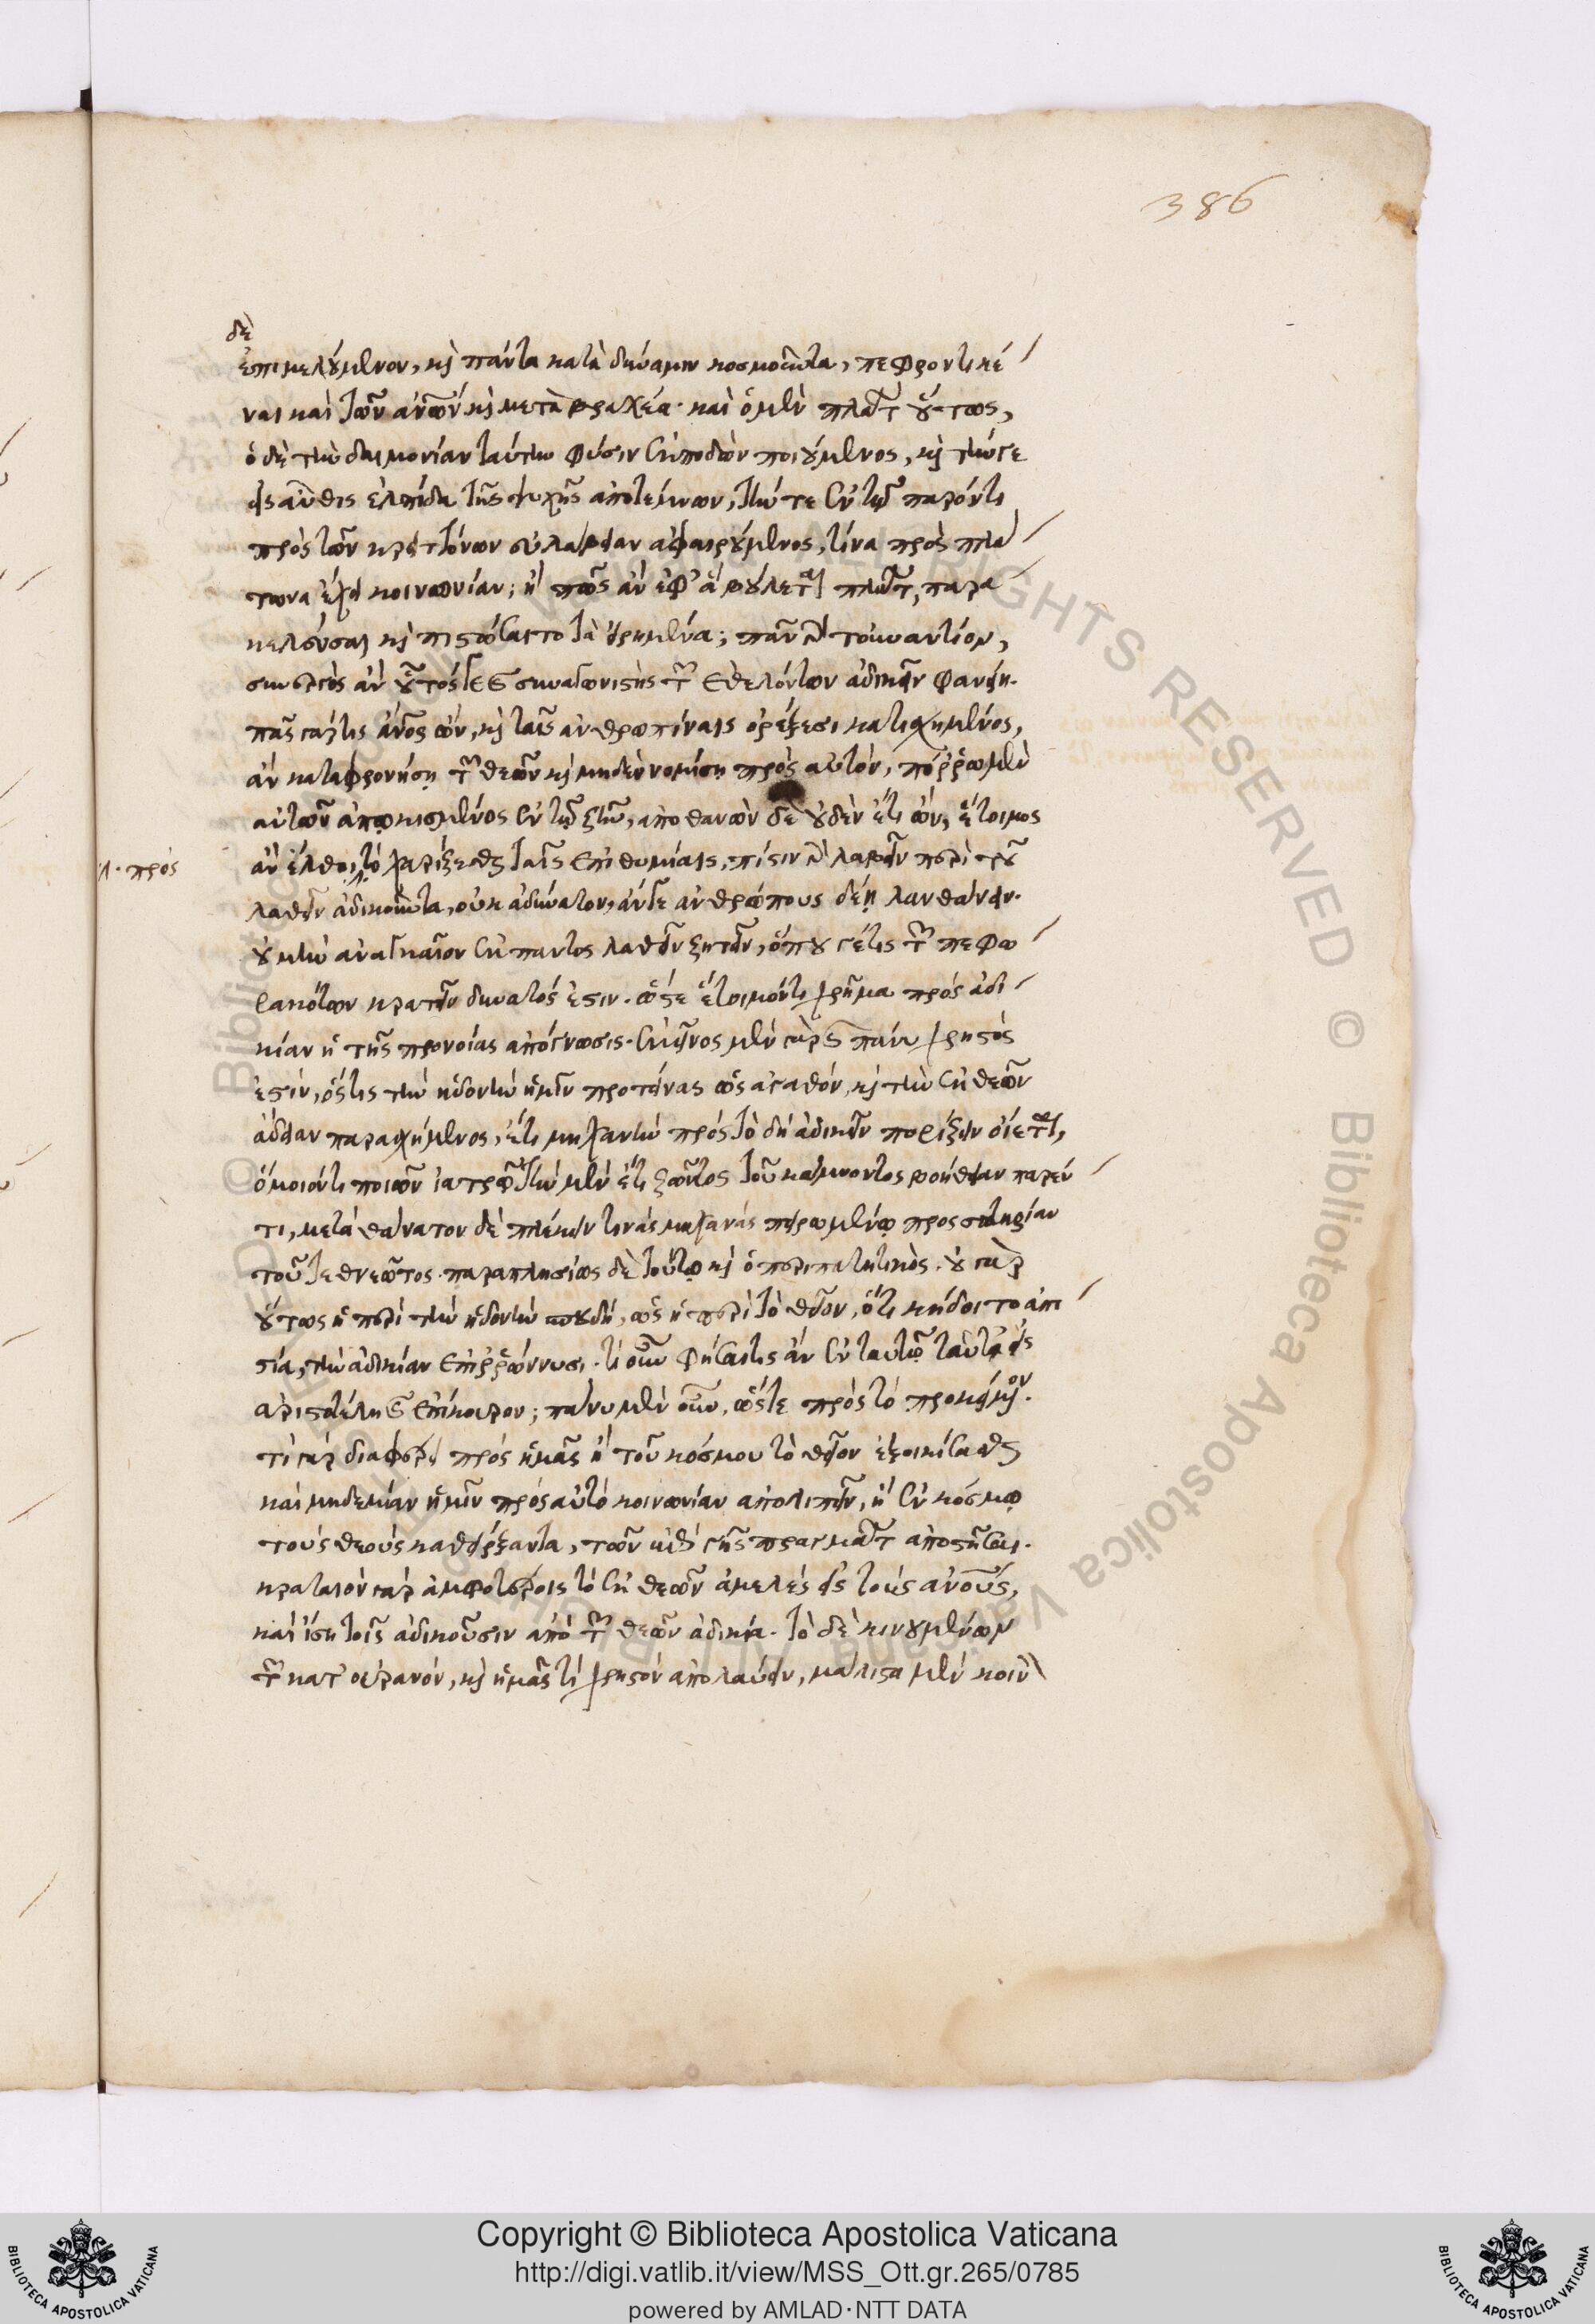 386
δὲ
ἐπιμελούμενον, καὶ πάντα κατὰ δύναμιν κοσμοῦντα, πεφροντικέ
ναι καὶ τῶν ἀνῶν καὶ μετὰ βραχέα· καὶ ὁ μὲν πλάτ οὕτως,
ὁ δὲ τὴν δαιμονίαν ταύτην φύσιν ἐκποδὼν ποιούμενος, καὶ τήν γε
εἰσαῦθις ἐλπίδα τῆς ψυχῆς ἀποτέμνων, τήν τε ἐν τῷ παρόντι
πρὸς τῶν κρειττόνων εὐλάβειαν ἀφαιρούμενος, τίνα πρὸς πλά
τωνα ἔχει κοινωνίαν; ἢ πῶς ἂν ἐφ' ἃ βούλεται πλάτ, παρα
κελεύσαι καὶ πιστώσαιτο τὰ εἰρημένα; πᾶν γὰρ τοὐναντίον,
συνεργὸς ἂν οὗτός γε καὶ συναγωνιστὴς τῶν ἐθελόντων ἀδικεῖν φανείη.
πᾶς γάρ τις ἄνος ὢν, καὶ ταῖς ἀνθρωπίναις ὀρέξεσι κατισχημένος,
ἂν καταφρονήσῃ τῶν θεῶν καὶ μηδὲν νομίσῃ πρὸς αὐτὸν, πόρρω μὲν
αὐτῶν ἀπῳκισμένος ἐν τῷ ζῆν, ἀποθανὼν δὲ οὐδὲν ἔτι ὢν, ἕτοιμος
λ· πρὸς
ἂν ἔλθοι, τὸ χαρίζεσθαι ταῖς ἐπιθυμίαις, πίστιν γὰρ λαβεῖν περὶ τοῦ
λαθεῖν ἀδικοῦντα, οὐκ ἀδύνατον, ἄν γε ἀνθρώπους δέῃ λανθάνειν.
οὐ μὴν ἀναγκαῖον ἐκ παντὸς λαθεῖν ζητεῖν, ὅπου γέ τις τῶν πεφω
ρακότων κρατεῖν δυνατός ἐστιν. ὥστε ἕτοιμόν τι χρῆμα πρὸς ἀδι
κίαν ἡ τῆς προνοίας ἀπόγνωσις. ἐκεῖνος μὲν γὰρ καὶ πάνυ χρηστός
ἐστίν, ὅστις τὴν ἡδονὴν ἡμῖν προτείνας ὡς ἀγαθόν, καὶ τὴν ἐκ θεῶν
ἄδειαν παρασχόμενος, ἔτι μηχανὴν πρὸς τὸ δὴ ἀδικεῖν πορίζειν οἴεται,
ὅμοιόν τι ποιῶν ἰατρῷ τὴν μὲν ἔτι ζῶντος τοῦ κάμνοντος βοήθειαν παρέν
τι, μετὰ θάνατον δὲ πλέκειν τινὰς μηχανὰς πειρωμένῳ πρὸς σωτηρίαν
τοῦ τεθνεῶτος. παραπλησίως δὲ τούτῳ καὶ ὁ περιπατητικός. οὐ γὰρ
οὕτως ἡ περὶ τὴν ἡδονὴν σπουδὴ, ὡς ἡ περὶ τὸ θεῖον, ὅτι κήδοιτο ἀπι
στία, τὴν ἀδικίαν ἐπιρρώννυσι. τί οὖν φήσαι τις ἂν ἐν ταυτῷ ταύταις
ἀριστοτέλη καὶ ἐπίκουρον; πάνυ μὲν οὖν, ὥστε πρὸς τὸ προκείμενον.
τί γὰρ διαφέρει πρὸς ἡμᾶς ἢ τοῦ κόσμου τὸ θεῖον ἐξοικίσασθαι
καὶ μηδεμίαν ἡμῖν πρὸς αὐτὸ κοινωνίαν ἀπολιπεῖν, ἢ ἐν κόσμῳ
τοὺς θεοὺς καθείρξαντα, τῶν ἐπὶ γῆς πραγμάτ ἀποστῆσαι.
κραταιὸν γὰρ ἀμφοτέροις τὸ ἐκ θεῶν ἀμελὲς εἰς τοὺς ἀνοὺς,
καὶ ἴση τοῖς ἀδικοῦσιν ἀπὸ τῶν θεῶν ἀδικία. τὸ δὲ κινουμένων
τῶν κατ' οὐρανόν, καὶ ἡμᾶς τι χρηστὸν ἀπολαύειν, μάλιστα μὲν κοιν
Copyright © Biblioteca Apostolica Vaticana
http://digi.vatlib.it/view/MSS_Ott.gr.265/0785
powered by AMLAD·NTT DATA